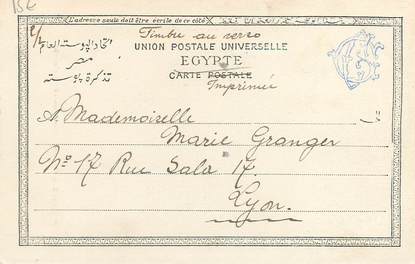 15€
L'adresse seule doit être écrite de ce côté
Timbre au verso
UNION POSTALE UNIVERSELLE
اتحاد البوستة العام
EGYPTE
مصر
CARTE POSTALE
تذكرة بوسته
Imprimée
A. Mademoiselle
Marie Granger
No 17 Rue Sala 17.
Lyon.